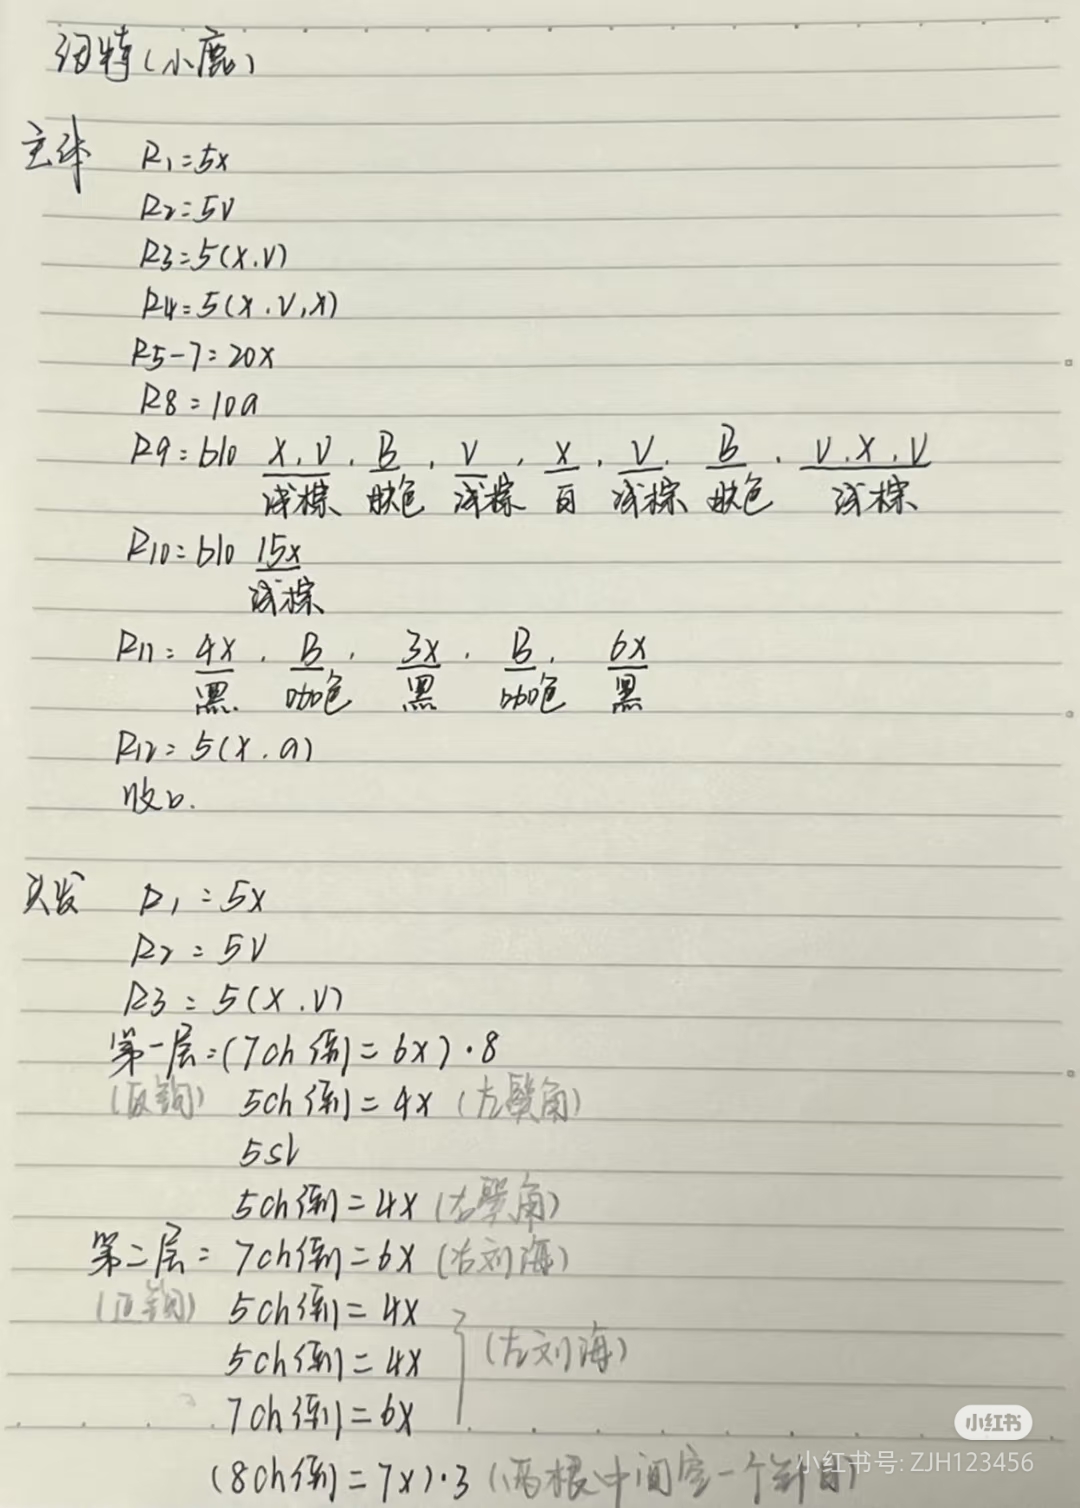 纽特(小鹿)
主体 R1=5x
R2=5V
R3=5(x.V)
R4=5(x.V,x)
R5-7=20x
R8=10a
R9=blo x,V,B,V,x,V,B,V.x,V
浅棕 肤色 浅棕 白 浅棕 肤色 浅棕
R10=blo 15x
浅棕
R11=4x.B.3x.B.6x
黑 咖色 黑 咖色 黑
R12=5(x.a)
收口.
头发 R1=5x
R2=5V
R3=5(x.V)
第一层=(7ch 倒=6x)·8
(反钩) 5ch倒=4x (左鬓角)
5sl
5ch倒=4x (右鬓角)
第二层=7ch倒=6x (右刘海)
(正钩) 5ch倒=4x
5ch倒=4x (左刘海)
7ch倒=6x
(8ch倒=7x)·3 (两根中间空一个针目)
小红书
小红书号: ZJH123456